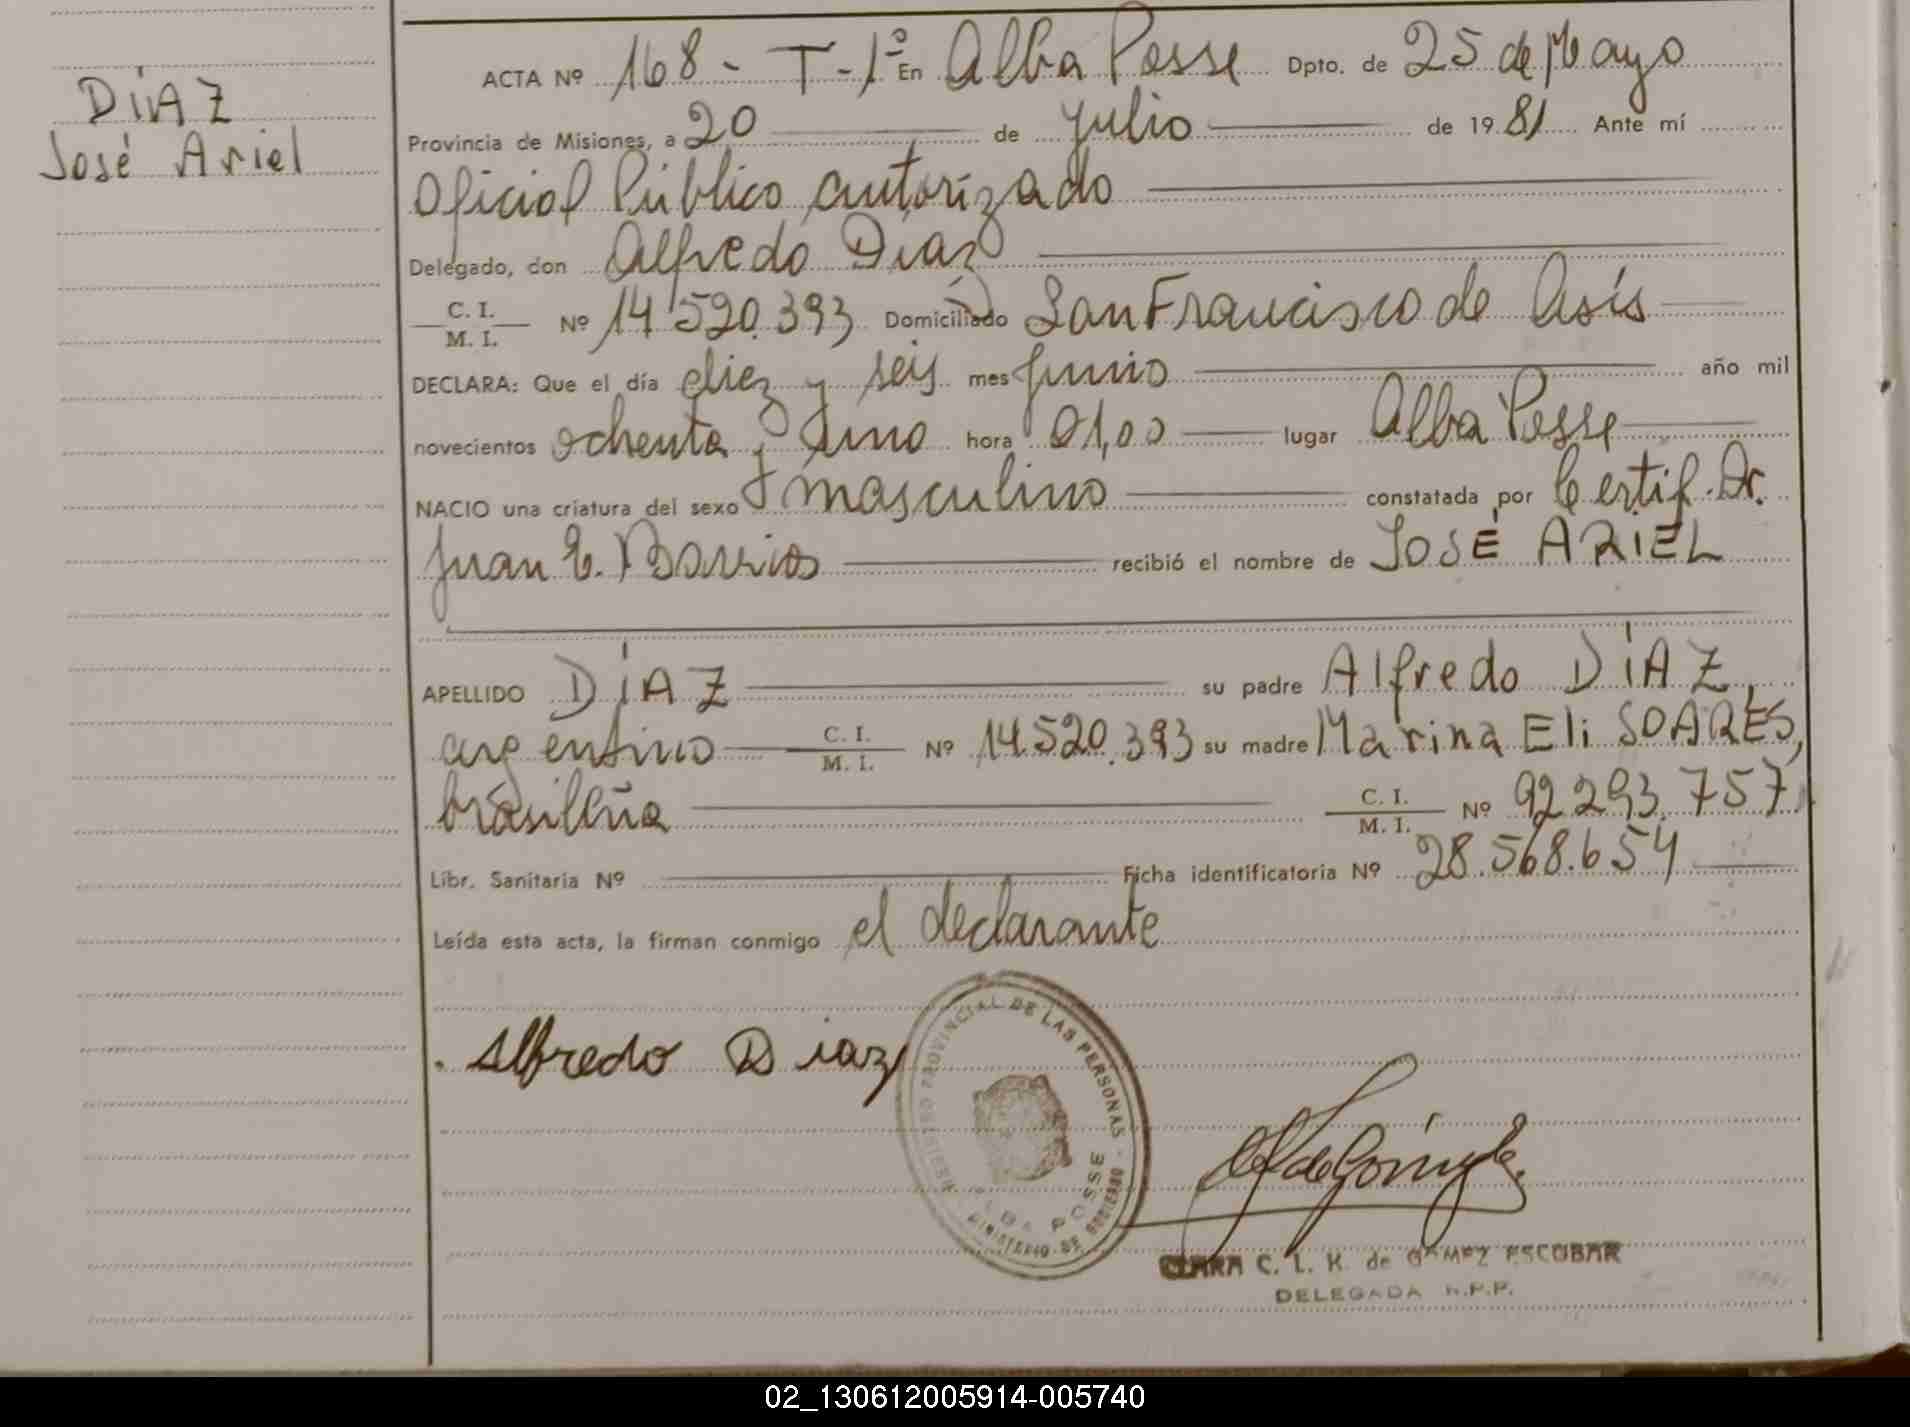 DíAZ
José Ariel
ACTA Nº 168 - T-1º En Alba Posse Dpto. de 25 de Mayo
Provincia de Misiones, a 20 de julio de 1981 Ante mí
Oficial Público autorizado
Delegado, don Alfredo Díaz
C. I.
M. I. Nº 14.520.393 Domiciliado San Francisco de Asís
DECLARA: Que el día diez y seis mes junio año mil
novecientos ochenta y uno hora 01,00 lugar Alba Posse
NACIO una criatura del sexo masculino constatada por Certif. Dr.
Juan E. Barrios recibió el nombre de JOSÉ ARIEL
APELLIDO DíAZ su padre Alfredo DíAZ,
argentino C. I.
M. I. Nº 14.520.393 su madre Marina Eli SOARES,
brasileña C. I.
M. I. Nº 92.293.757
Libr. Sanitaria Nº Ficha identificatoria Nº 28.568.654
Leída esta acta, la firman conmigo el declarante
Alfredo Diaz
PROVINCIAL DE LAS PERSONAS
ALBA POSSE
MINISTERIO DE GOBIERNO
CLARA C. L. K. de GAMEZ ESCOBAR
DELEGADA R.P.P.
02_130612005914-005740